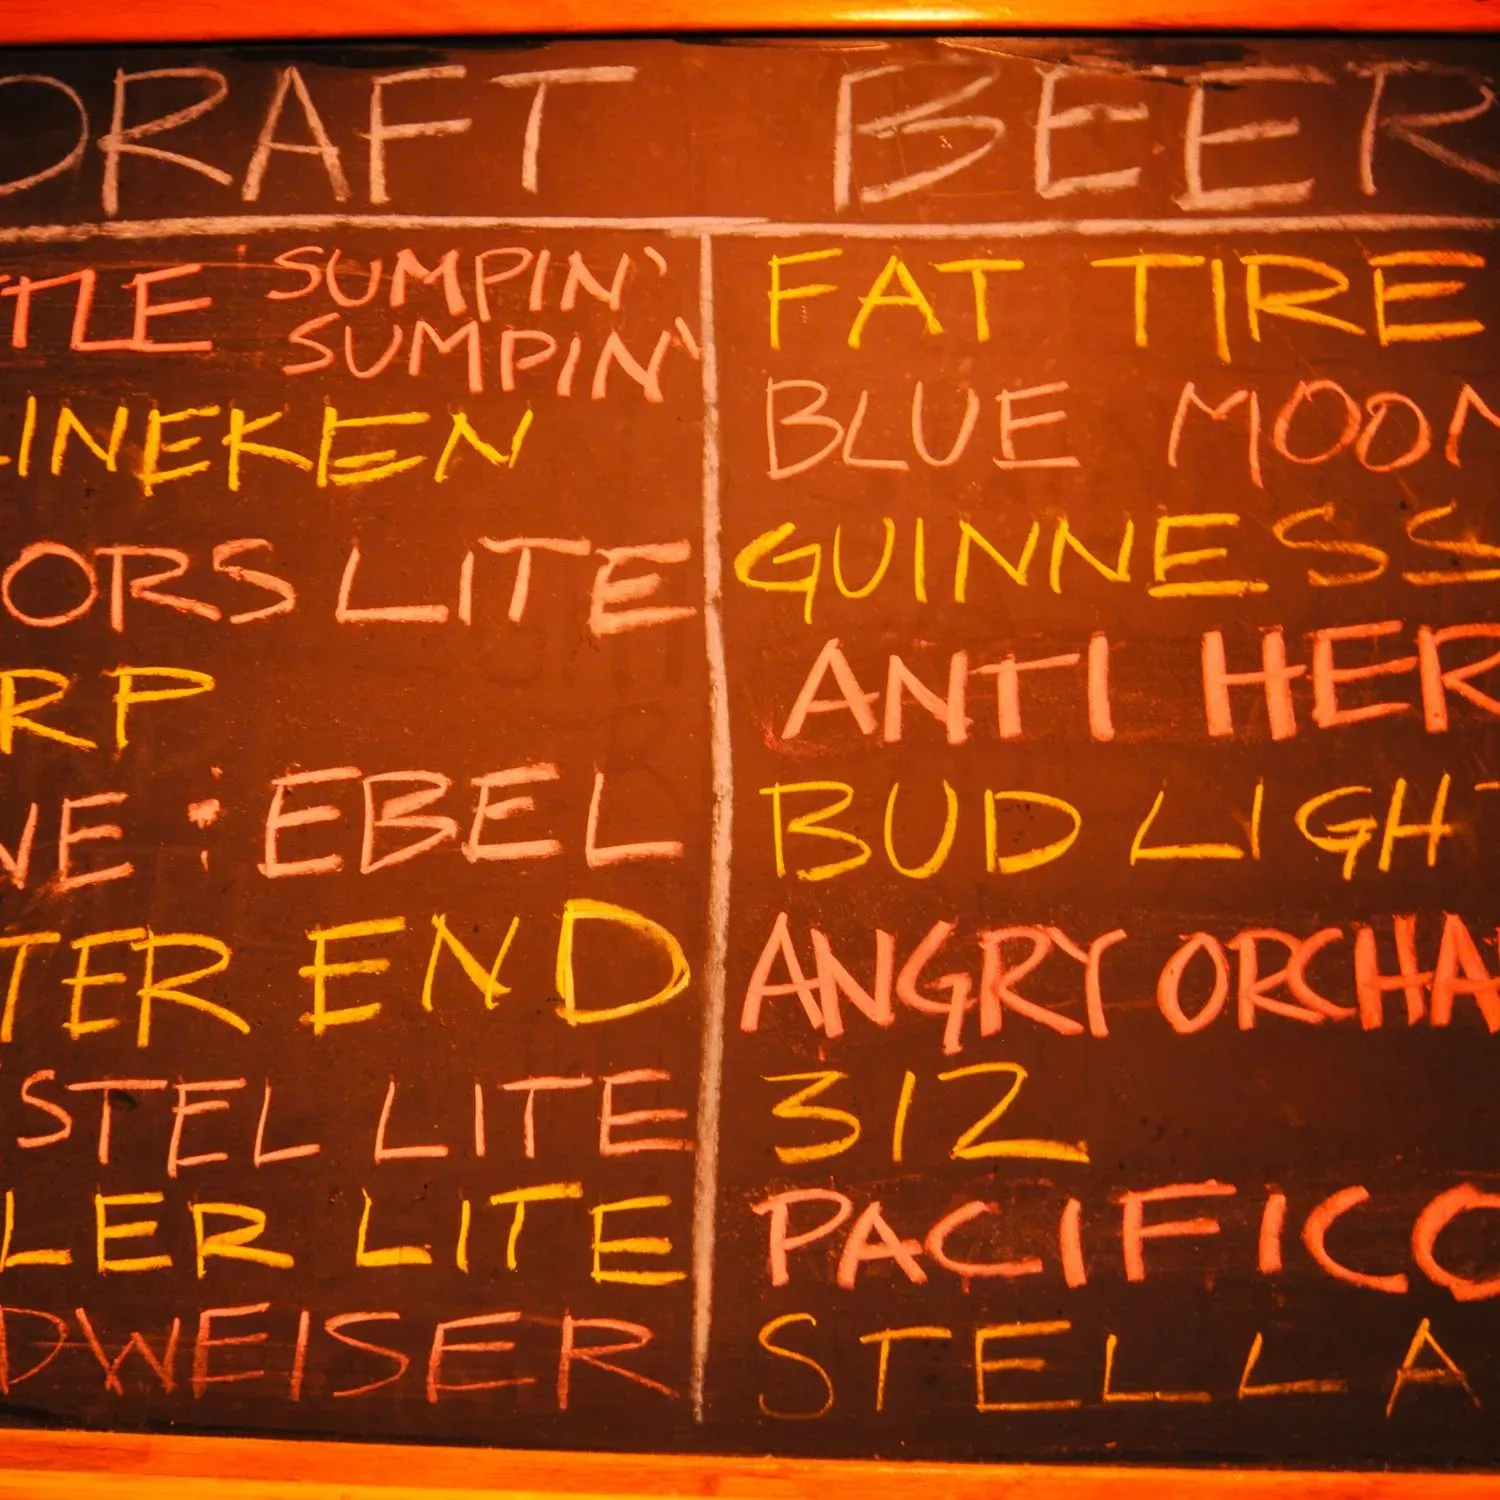 DRAFT BEER
TLE SUMPIN'
SUMPIN'
INEKEN
ORS LITE
RP
NE : EBEL
TER END
STEL LITE
LER LITE
DWEISER
FAT TIRE
BLUE MOON
GUINNESS
ANTI HER
BUD LIGHT
ANGRY ORCHA
312
PACIFICO
STELLA